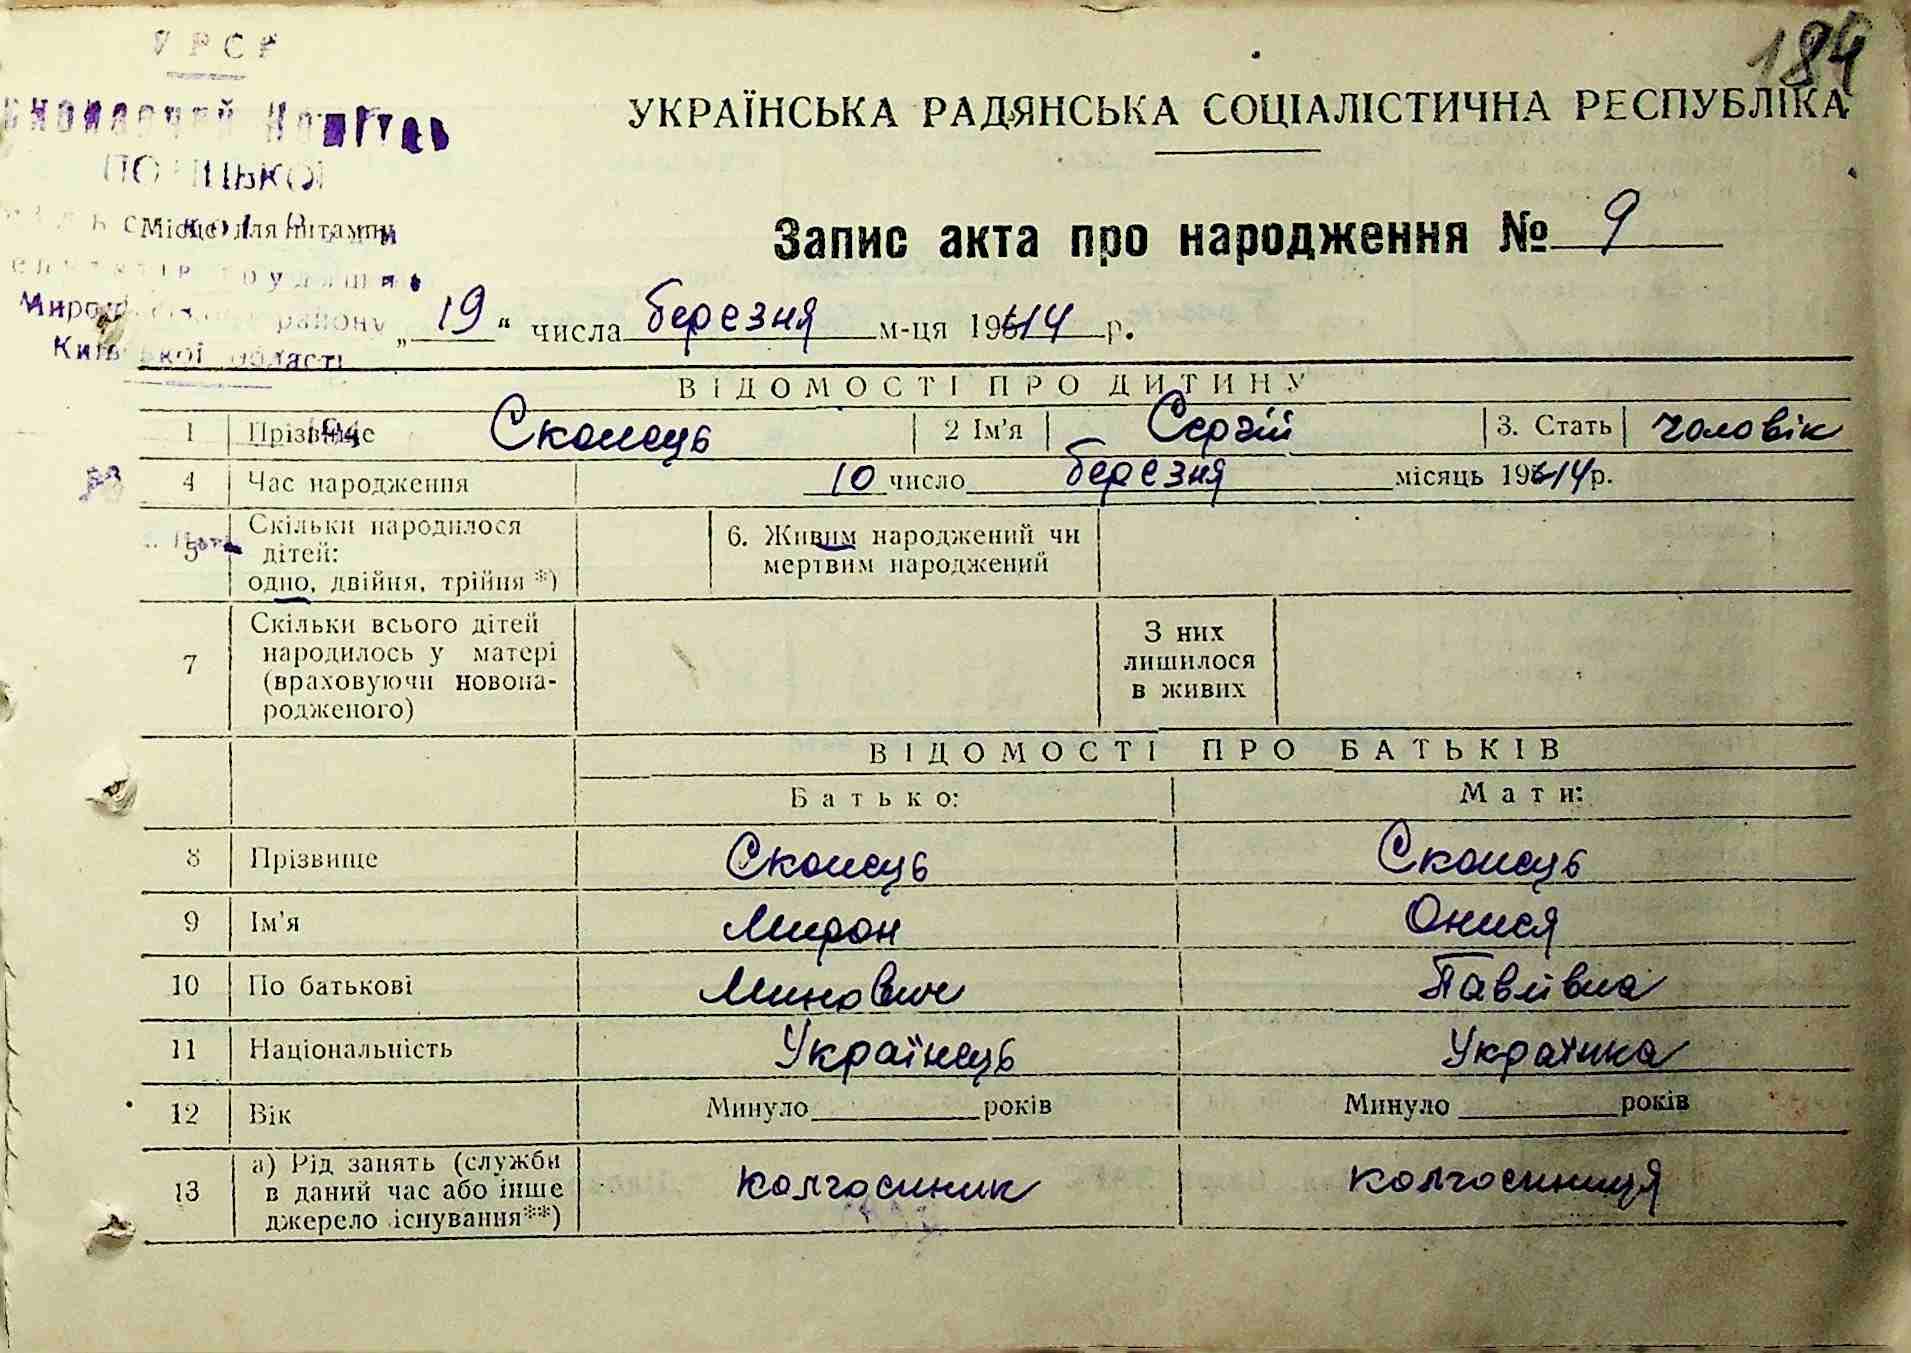 184
УРСР
УКРАЇНСЬКА РАДЯНСЬКА СОЦІАЛІСТИЧНА РЕСПУБЛІКА
Місце для штампу
Запис акта про народження № 9
району
Київської області
„19“ числа березня м-ця 1944 р.
ВІДОМОСТІ ПРО ДИТИНУ
1 Прізвище Сконець 2 Ім'я Сергій 3. Стать чоловік
4 Час народження 10 число березня місяць 1944 р.
5 Скільки народилося дітей: одно, двійня, трійня *)
6. Живим народжений чи мертвим народжений
7 Скільки всього дітей народилось у матері (враховуючи новонародженого)
З них лишилося в живих
ВІДОМОСТІ ПРО БАТЬКІВ
Батько: Мати:
8 Прізвище Сконець Сконець
9 Ім'я Мирон Онися
10 По батькові Минович Павлівна
11 Національність Українець Українка
12 Вік Минуло років Минуло років
13 а) Рід занять (служби в даний час або інше джерело існування**) колгоспник колгоспниця